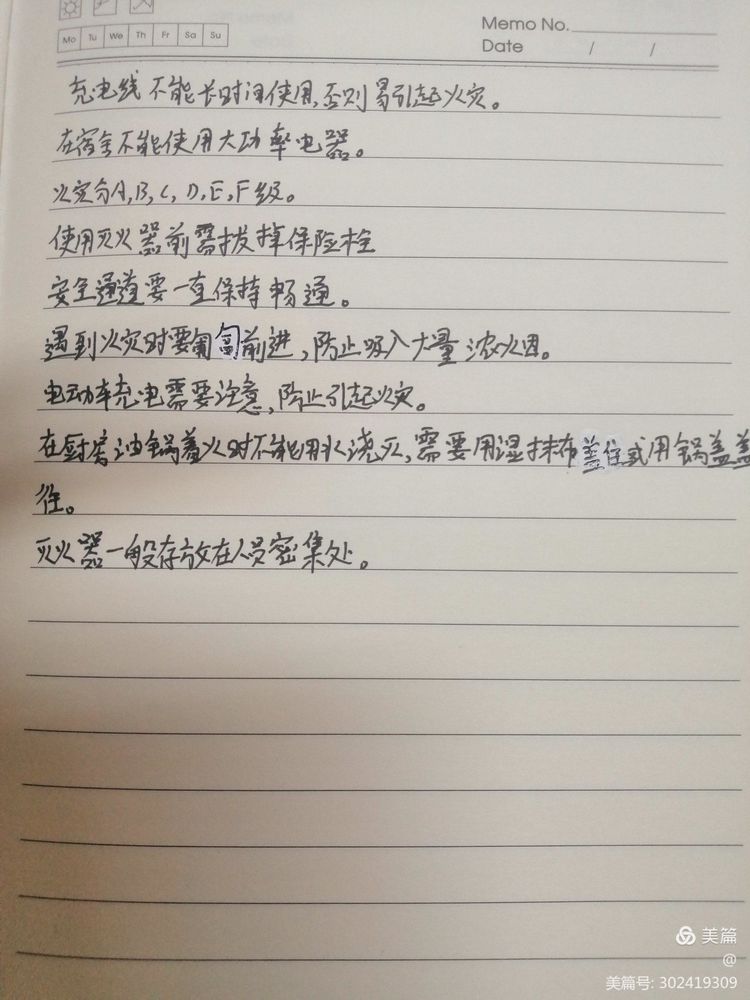 Memo No.
Mo Tu We Th Fr Sa Su
Date / /
充电线不能长时间使用,否则易引起火灾。
在宿舍不能使用大功率电器。
火灾分A,B,C,D,E,F级。
使用灭火器前需拔掉保险栓
安全通道要一直保持畅通。
遇到火灾时要匍匐前进,防止吸入大量浓烟。
电动车充电需要注意,防止引起火灾。
在厨房油锅着火时不能用水浇灭,需要用湿抹布盖住或用锅盖盖
住。
灭火器一般存放在人员密集处。
美篇
@
美篇号: 302419309